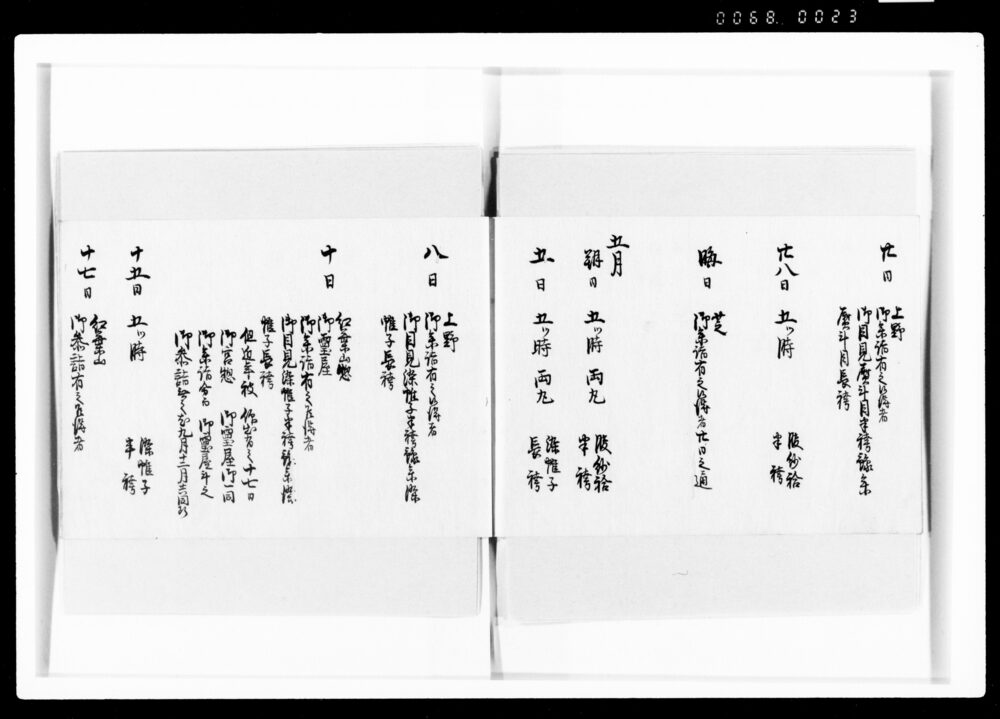 0068 0023
廿日
上野
御参詣有之候得者
御目見熨斗目半袴
熨斗目長袴
廿八日 五ツ時 服紗袷
半袴
晦日
芝
御参詣有之候得者廿日之通
五月
朔日 五ツ時 両丸 服紗袷
半袴
五日 五ツ時 両丸 染帷子
長袴
八日
上野
御参詣有之候得者
御目見染帷子半袴
帷子長袴
十日
紅葉山惣
御霊屋
御参詣有之候得者
御目見染帷子半袴
帷子長袴
但近年被 仰出有之十七日
御宮惣 御霊屋御一同
御参詣 御霊屋斗之
御参詣 九月十二月
十五日 五ツ時 染帷子
半袴
十七日
紅葉山
御参詣有之候得者